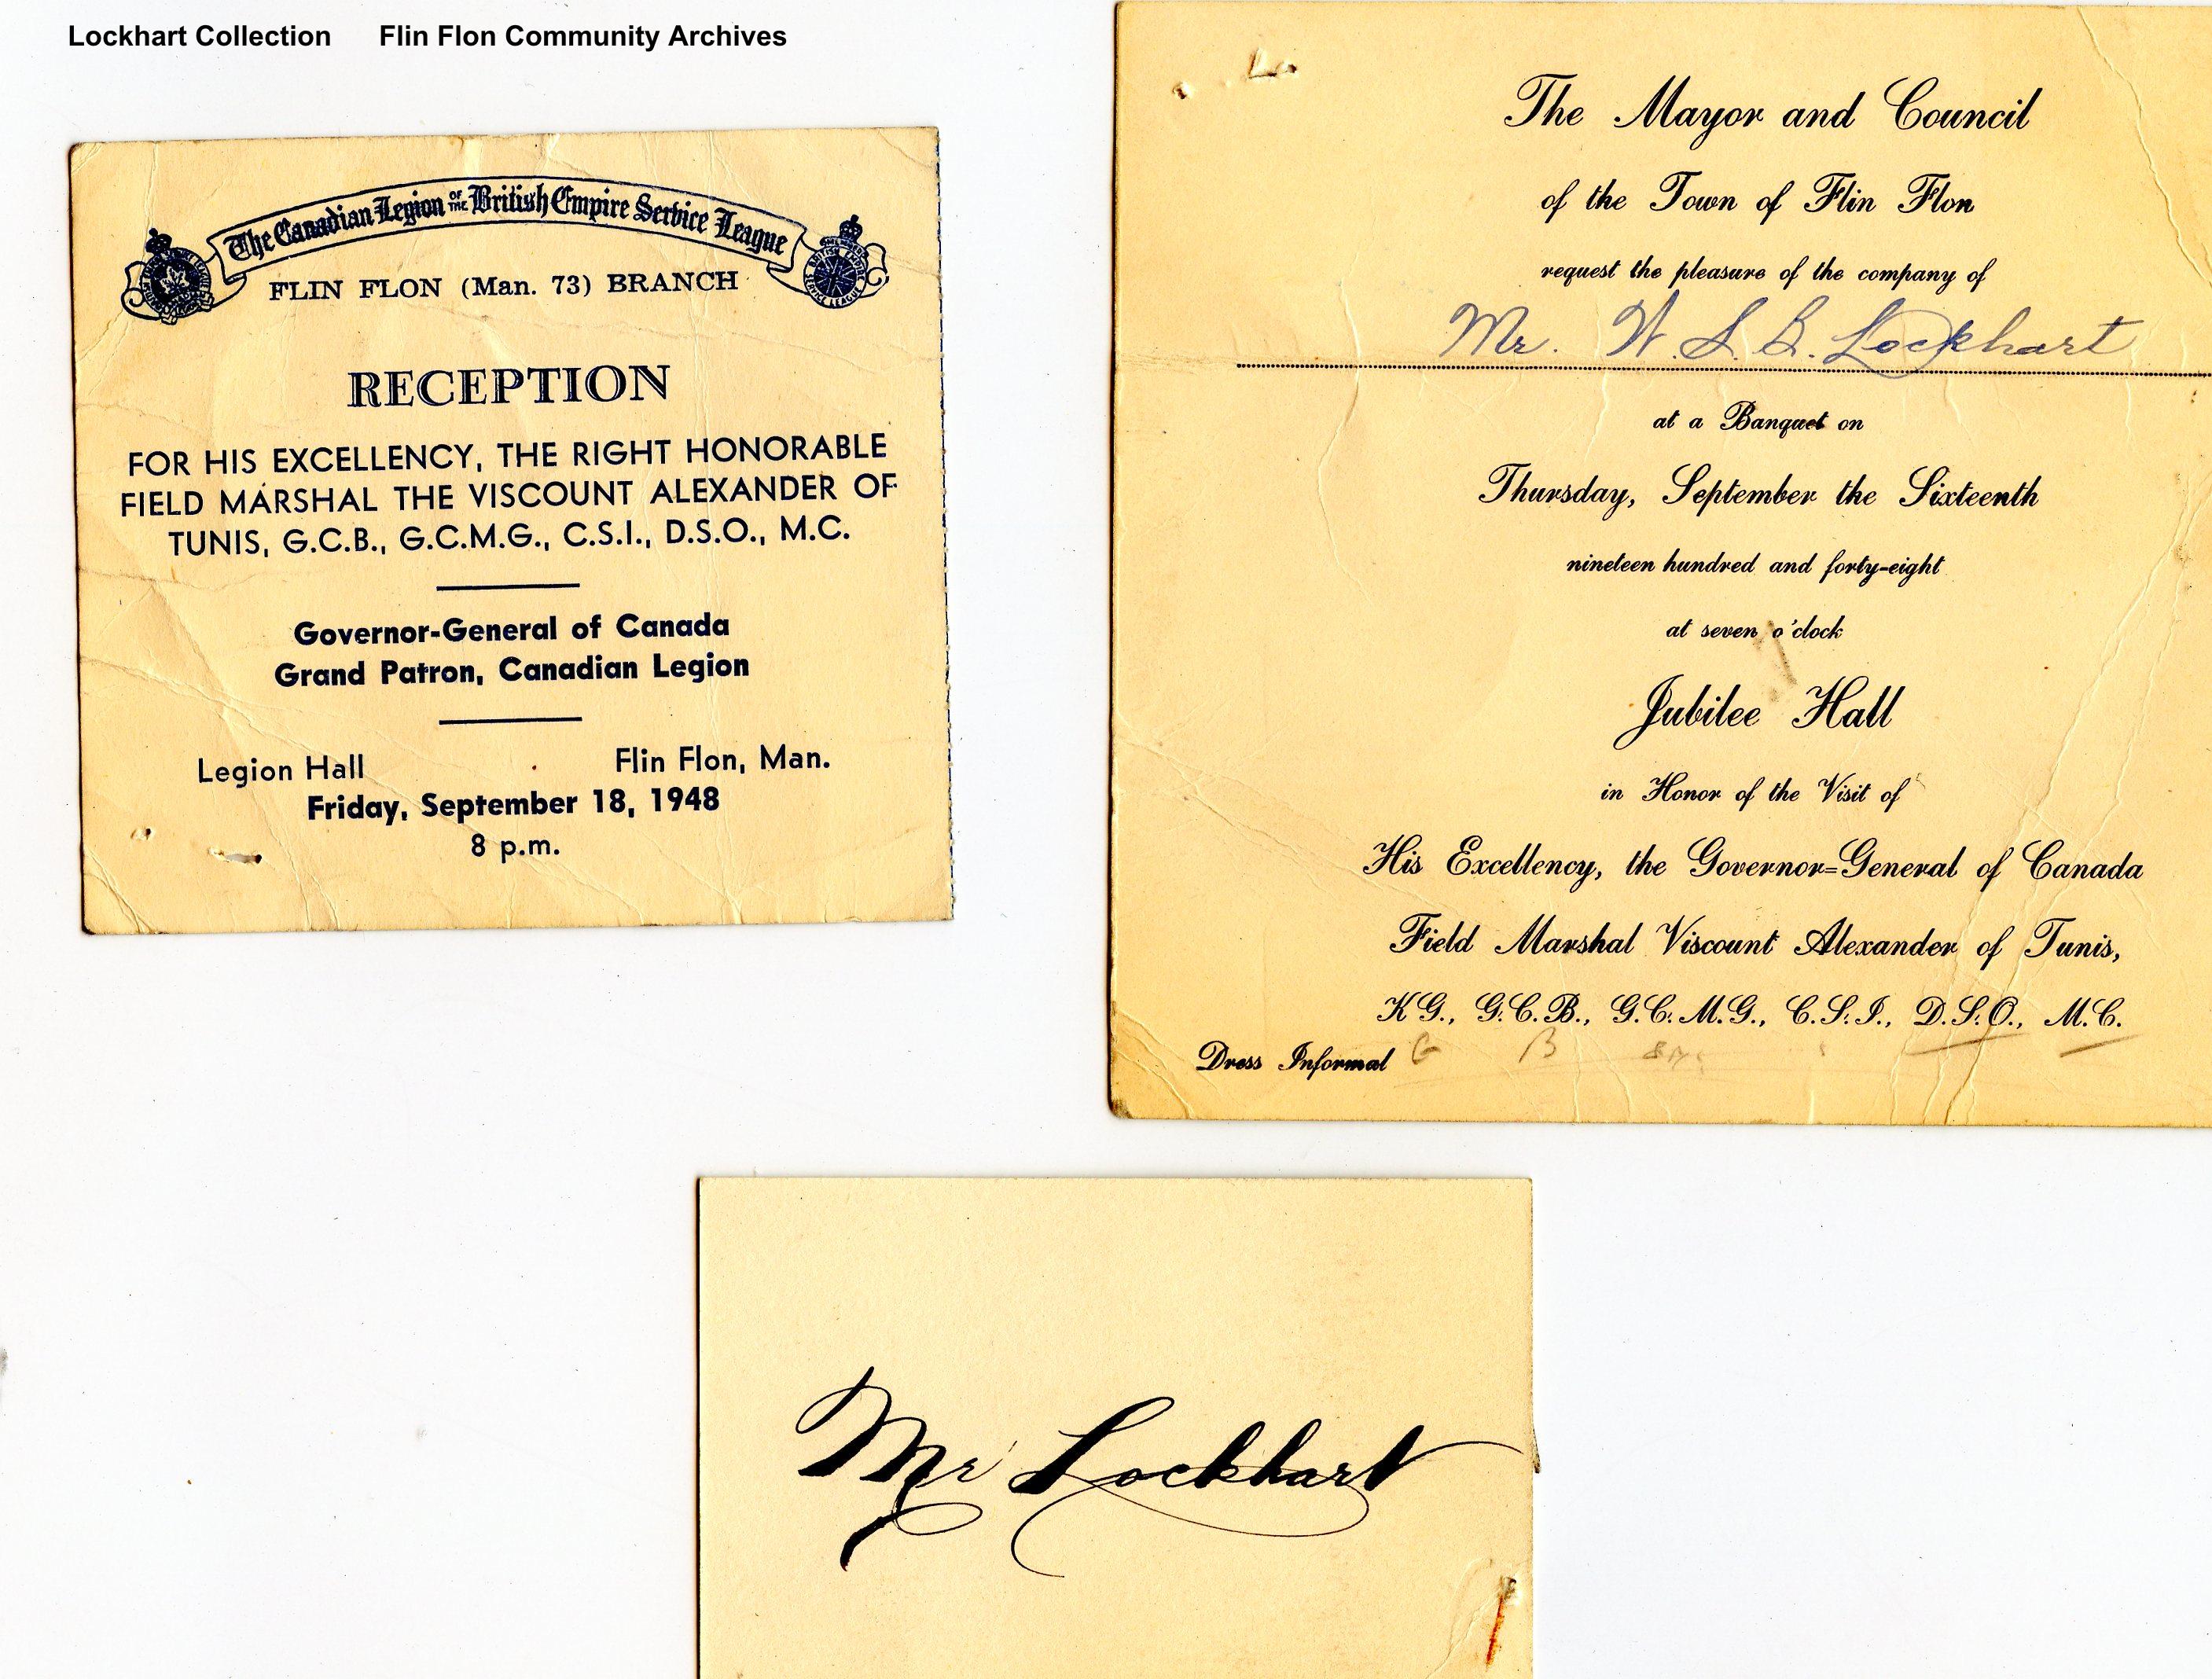 Lockhart Collection Flin Flon Community Archives
The Canadian Legion OF THE British Empire Service League
FLIN FLON (Man. 73) BRANCH
RECEPTION
FOR HIS EXCELLENCY, THE RIGHT HONORABLE
FIELD MARSHAL THE VISCOUNT ALEXANDER OF
TUNIS, G.C.B., G.C.M.G., C.S.I., D.S.O., M.C.
Governor-General of Canada
Grand Patron, Canadian Legion
Legion Hall Flin Flon, Man.
Friday, September 18, 1948
8 p.m.
The Mayor and Council
of the Town of Flin Flon
request the pleasure of the company of
Mr. W. S. G. Lockhart
at a Banquet on
Thursday, September the Sixteenth
nineteen hundred and forty-eight
at seven o'clock
Jubilee Hall
in Honor of the Visit of
His Excellency, the Governor=General of Canada
Field Marshal Viscount Alexander of Tunis,
KG., G.C.B., G.C.M.G., C.S.I., D.S.O., M.C.
Dress Informal
Mr Lockhart